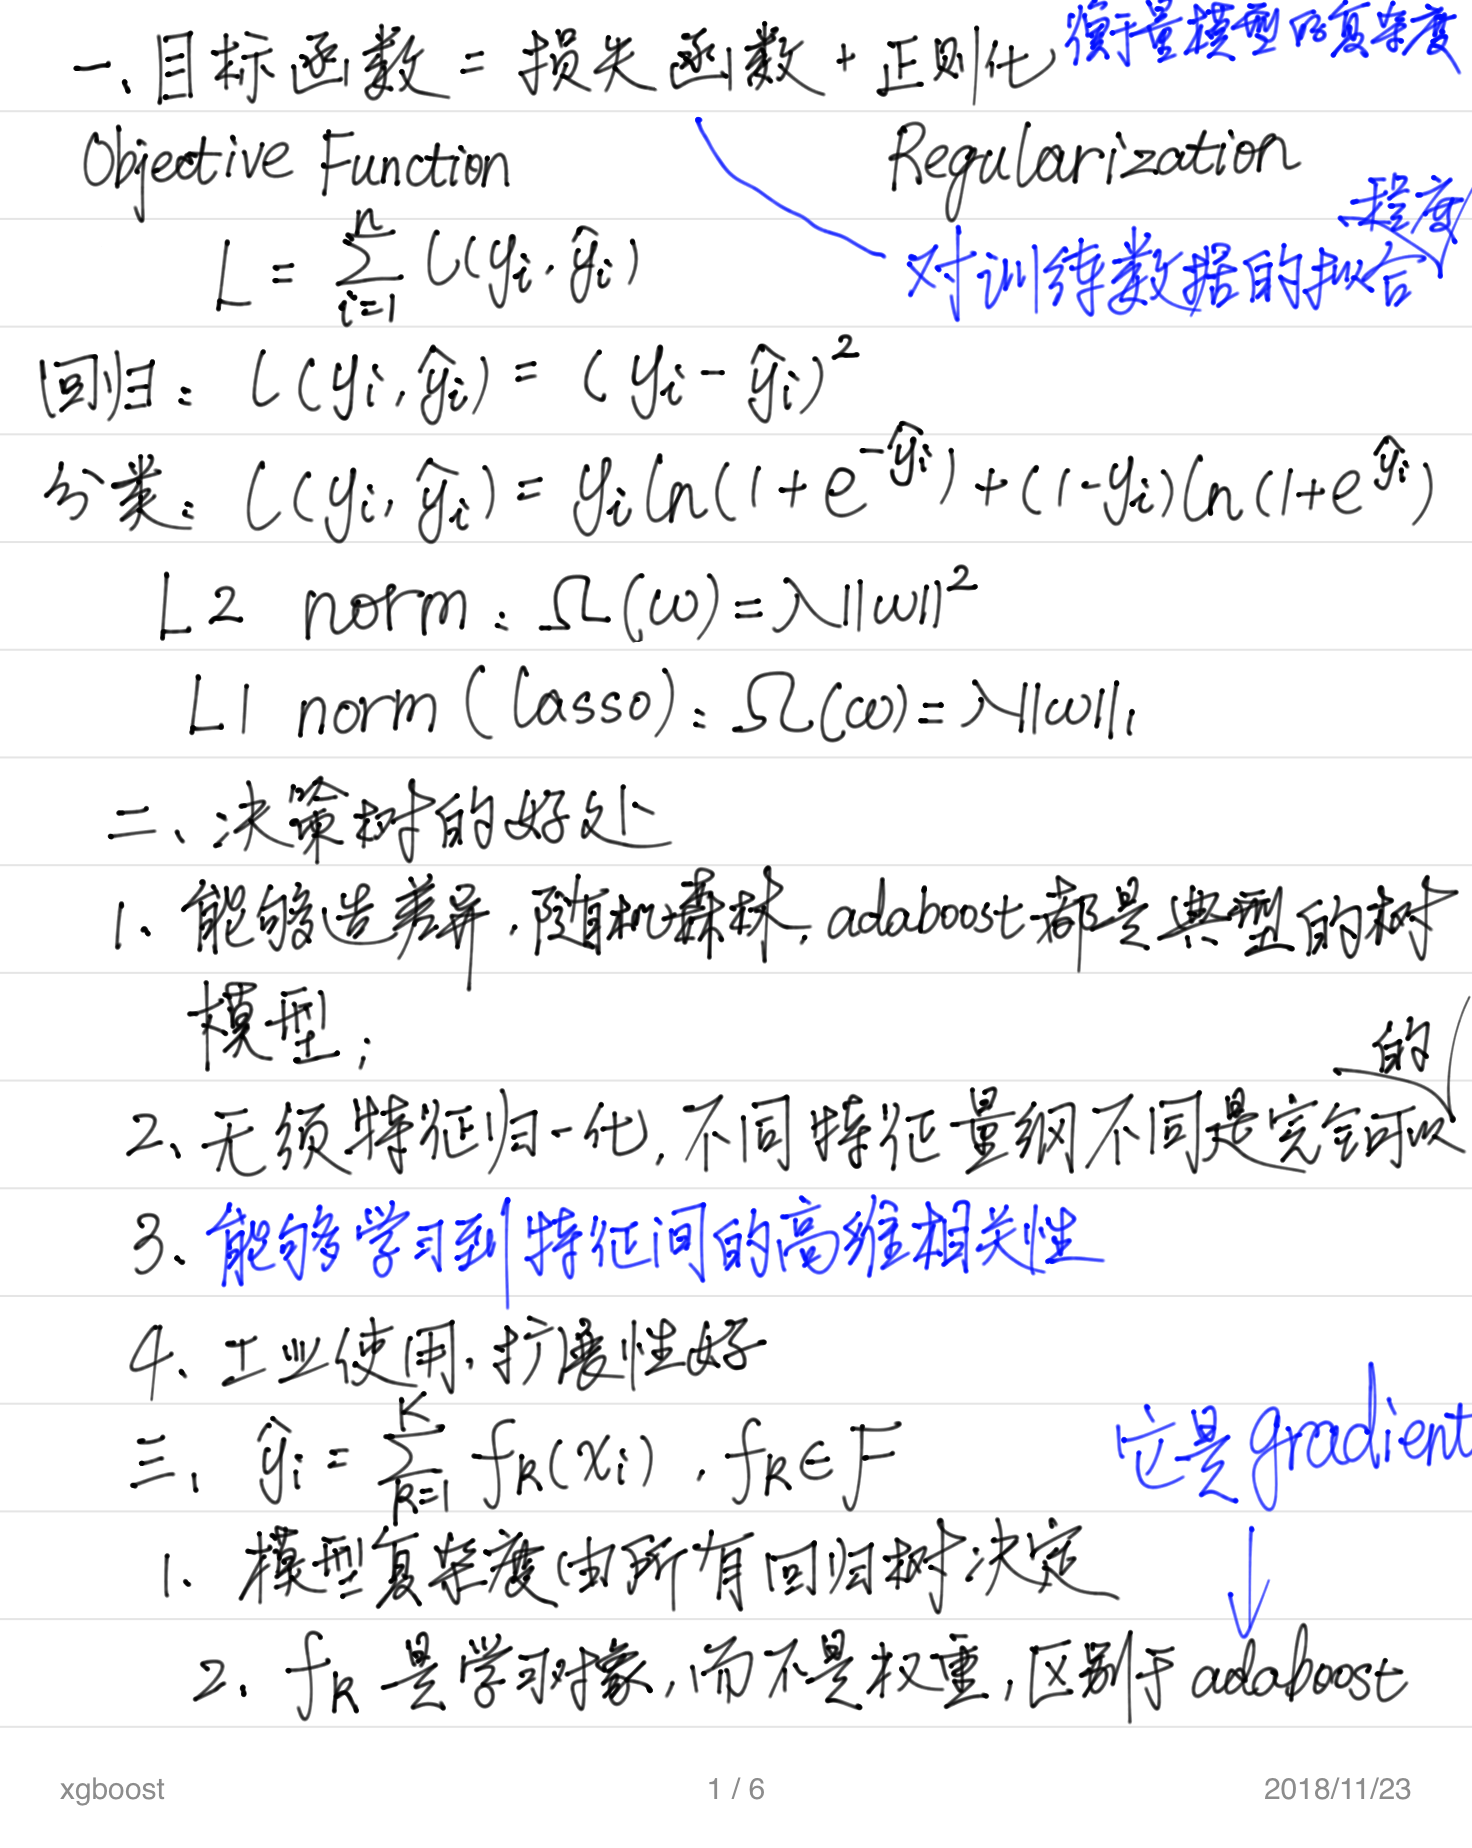 一、目标函数 = 损失函数 + 正则化 衡量模型的复杂度
Objective Function Regularization
L = ∑_{i=1}^{n} l(yi, ŷi) 对训练数据的拟合程度
回归: l(yi, ŷi) = (yi - ŷi)²
分类: l(yi, ŷi) = yi ln(1+e^{-ŷi}) + (1-yi) ln(1+e^{ŷi})
L2 norm: Ω(w) = λ||w||²
L1 norm (lasso): Ω(w) = λ||w||₁
二、决策树的好处
1、能够造差异，随机森林，adaboost都是典型的树
模型；
2、无须特征归一化，不同特征量纲不同是完全可以的
3、能够学习到特征间的高维相关性
4、工业使用，扩展性好
三、ŷi = ∑_{k=1}^{K} fk(xi), fk∈F 它是gradient
1、模型复杂度由所有回归树决定
2、fk 是学习对象，而不是权重，区别于adaboost
xgboost 1 / 6 2018/11/23